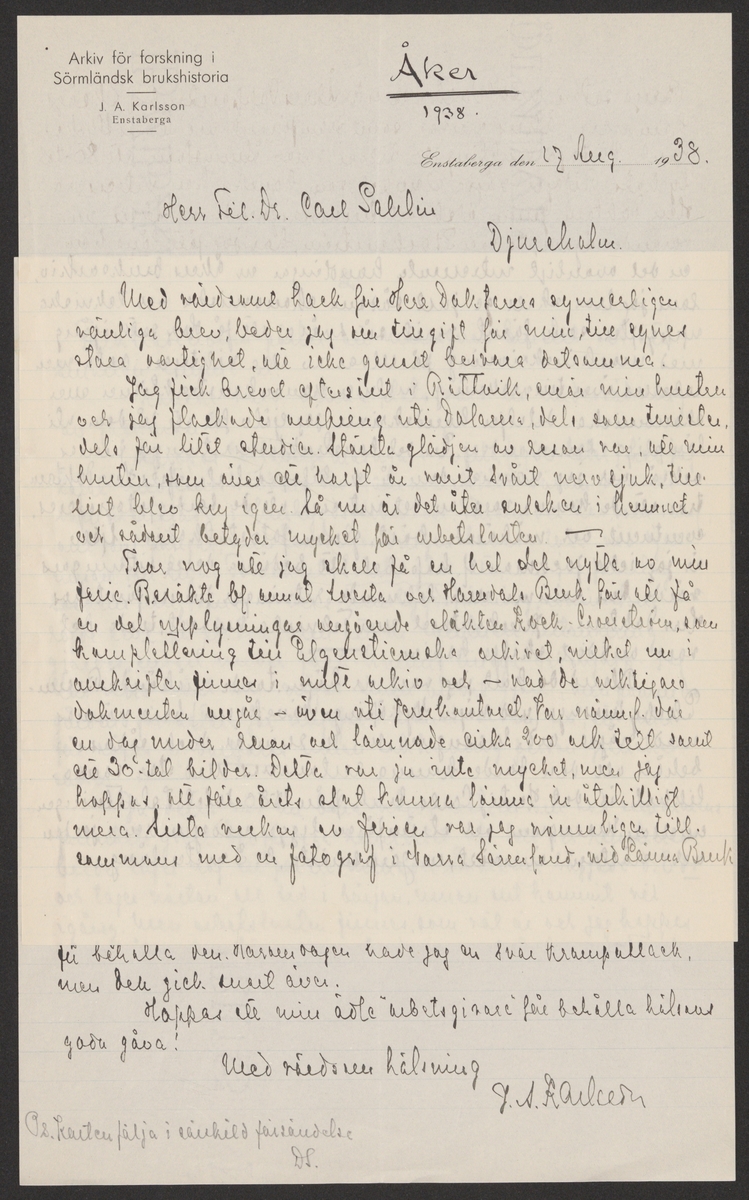 Arkiv för forskning i
Sörmländsk brukshistoria
J. A. Karlsson
Enstaberga
Åker
1938.
Enstaberga den 17 Aug. 1938.
Herr Fil. Dr. Carl Sahlin
Djursholm.
Med vördsamt tack för Herr Doktorns synnerligen
vänliga brev, beder jag om tillgift för min, till synes
stora oartighet, att icke genast besvara detsamma.
Jag fick brevet eftersänt i Rättvik, enär min hustru
och jag flackade omkring uti Dalarna, dels som turister,
dels för litet studier. Största glädjen av resan var, att min
hustru, som över ett halft år varit svårt nervsjuk, till
sist blev kry igen. Så nu är det åter solsken i hemmet
och sådant betyder mycket för arbetslusten. —
Tror nog att jag skall få en hel del nytta av min
ferie. Besökte bl. annat Avesta och Horndals Bruk för att få
en del upplysningar angående släkten Kock-Cronström, som
komplettering till Elgenstiernska arkivet, vilket nu i
avskrifter finnes i mitt arkiv och – vad de viktigare
dokumenten angår – även uti Jernkontoret. Var nämnl. där
en dag under resan och lämnade cirka 200 ark text samt
ett 30-tal bilder. Detta var ju inte mycket, men jag
hoppas, att före årets slut kunna lämna in åtskilligt
mera. Sista veckan av ferien var jag nämnligen till-
sammans med en fotograf i Norra Sörmland, vid Länna Bruk
få behålla den. Häromdagen hade jag en svår krampattack,
men den gick snart över.
Hoppas att min ädle "arbetsgivare" får behålla hälsans
goda gåva!
Med vördsam hälsning
J. A. Karlsson
Ps. Korten följa i särskild försändelse
DS.